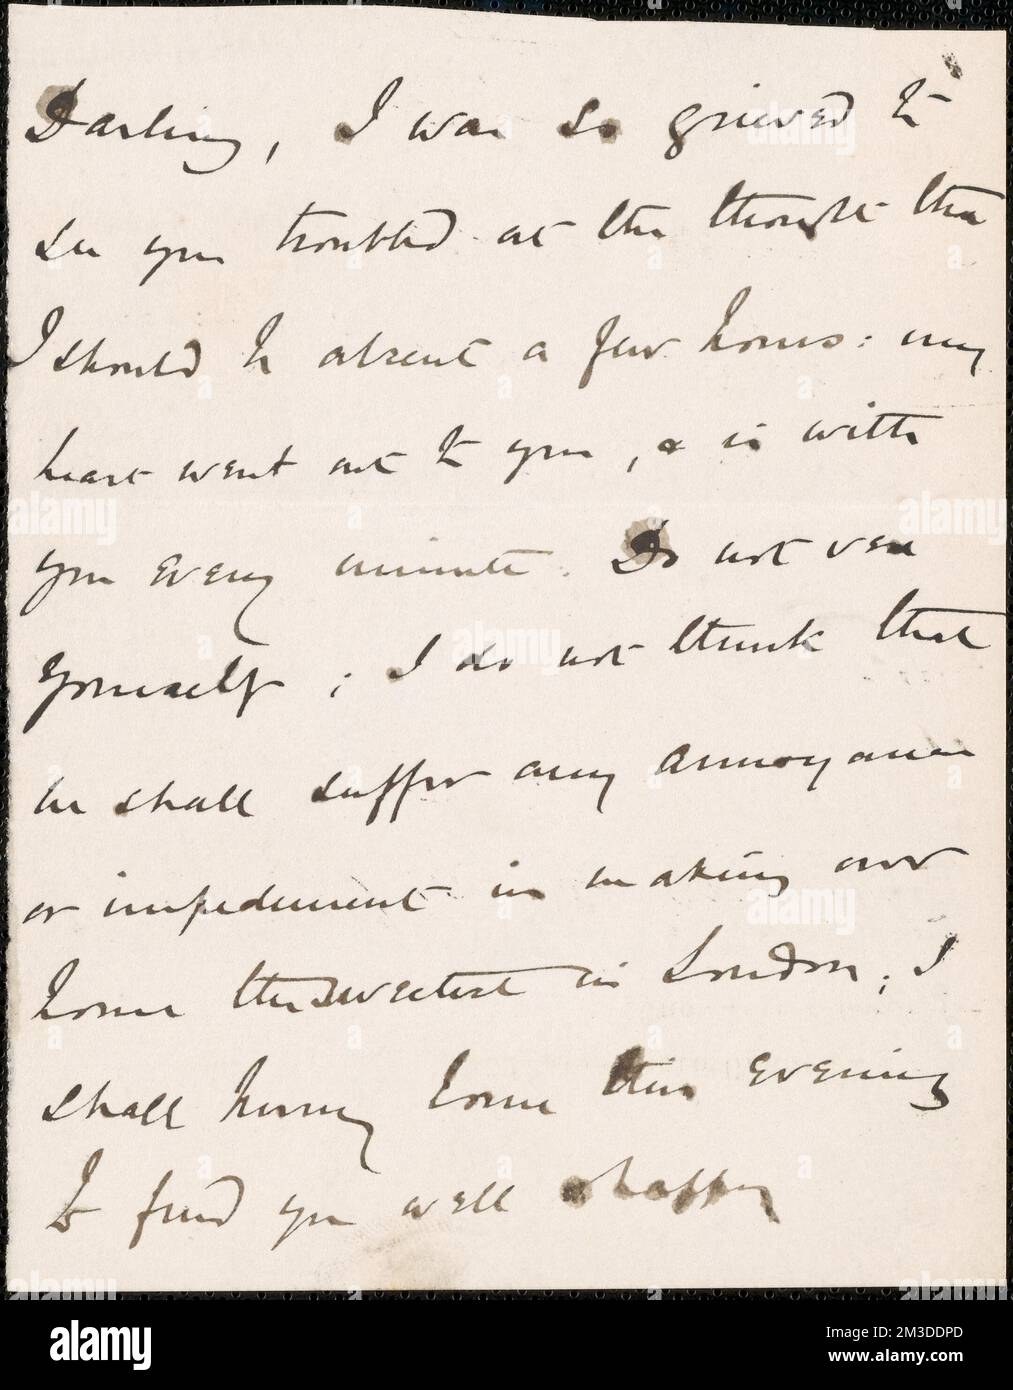 Darling, I was so grieved to
see you troubled at the thought that
I should be absent a few hours: my
heart went out to you, & is with
you every minute. Do not vex
yourself; I do not think that
we shall suffer any annoyance
or impediment in making our
home the sweetest in London; I
shall hurry home this evening
to find you well & happy
alamy
Image ID: 2M3DDPD
www.alamy.com